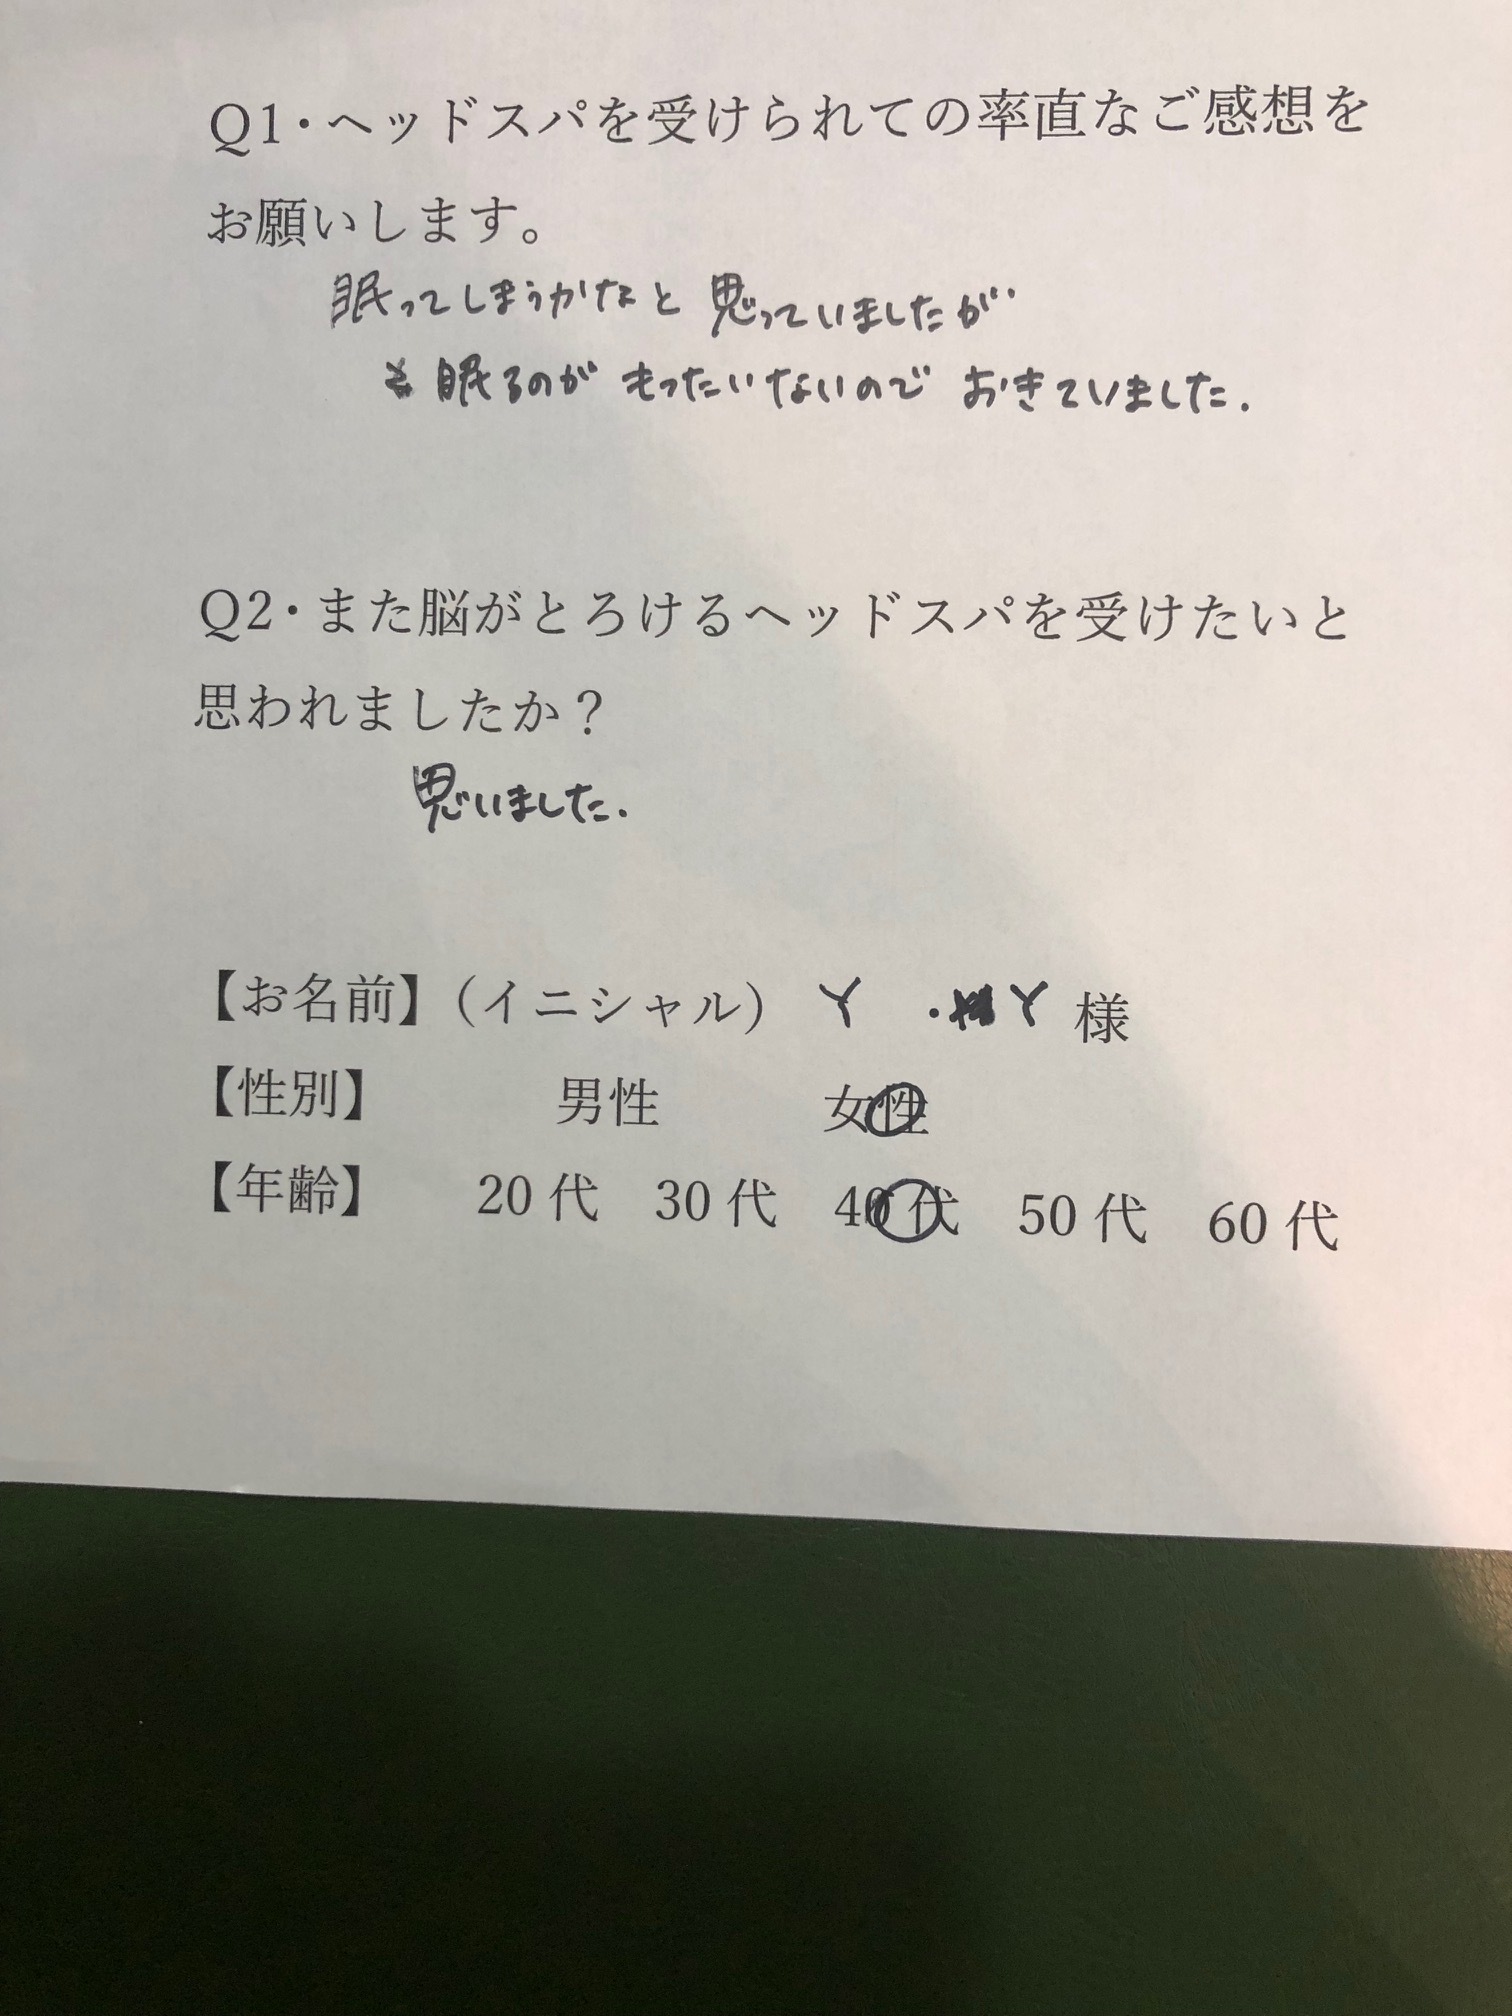 Q1・ヘッドスパを受けられての率直なご感想を
お願いします。
眠ってしまうかなと思っていましたが
眠るのがもったいないのでおきていました.
Q2・また脳がとろけるヘッドスパを受けたいと
思われましたか？
思いました.
【お名前】（イニシャル） Y ・ Y 様
【性別】 男性 女性
【年齢】 20代 30代 40代 50代 60代